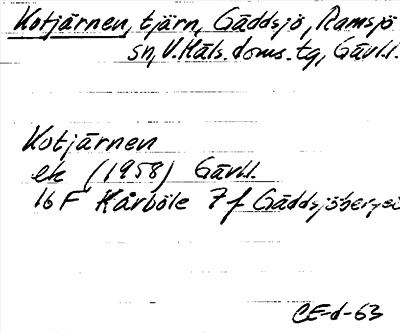 Kotjärnen, tjärn, Gäddsjö, Ramsjö
sn, V. Häls. doms. tg, Gävl.l.
Kotjärnen
ek (1958) Gävl.l.
16 F Kårböle 7 f Gäddsjöberget
CE-d-63